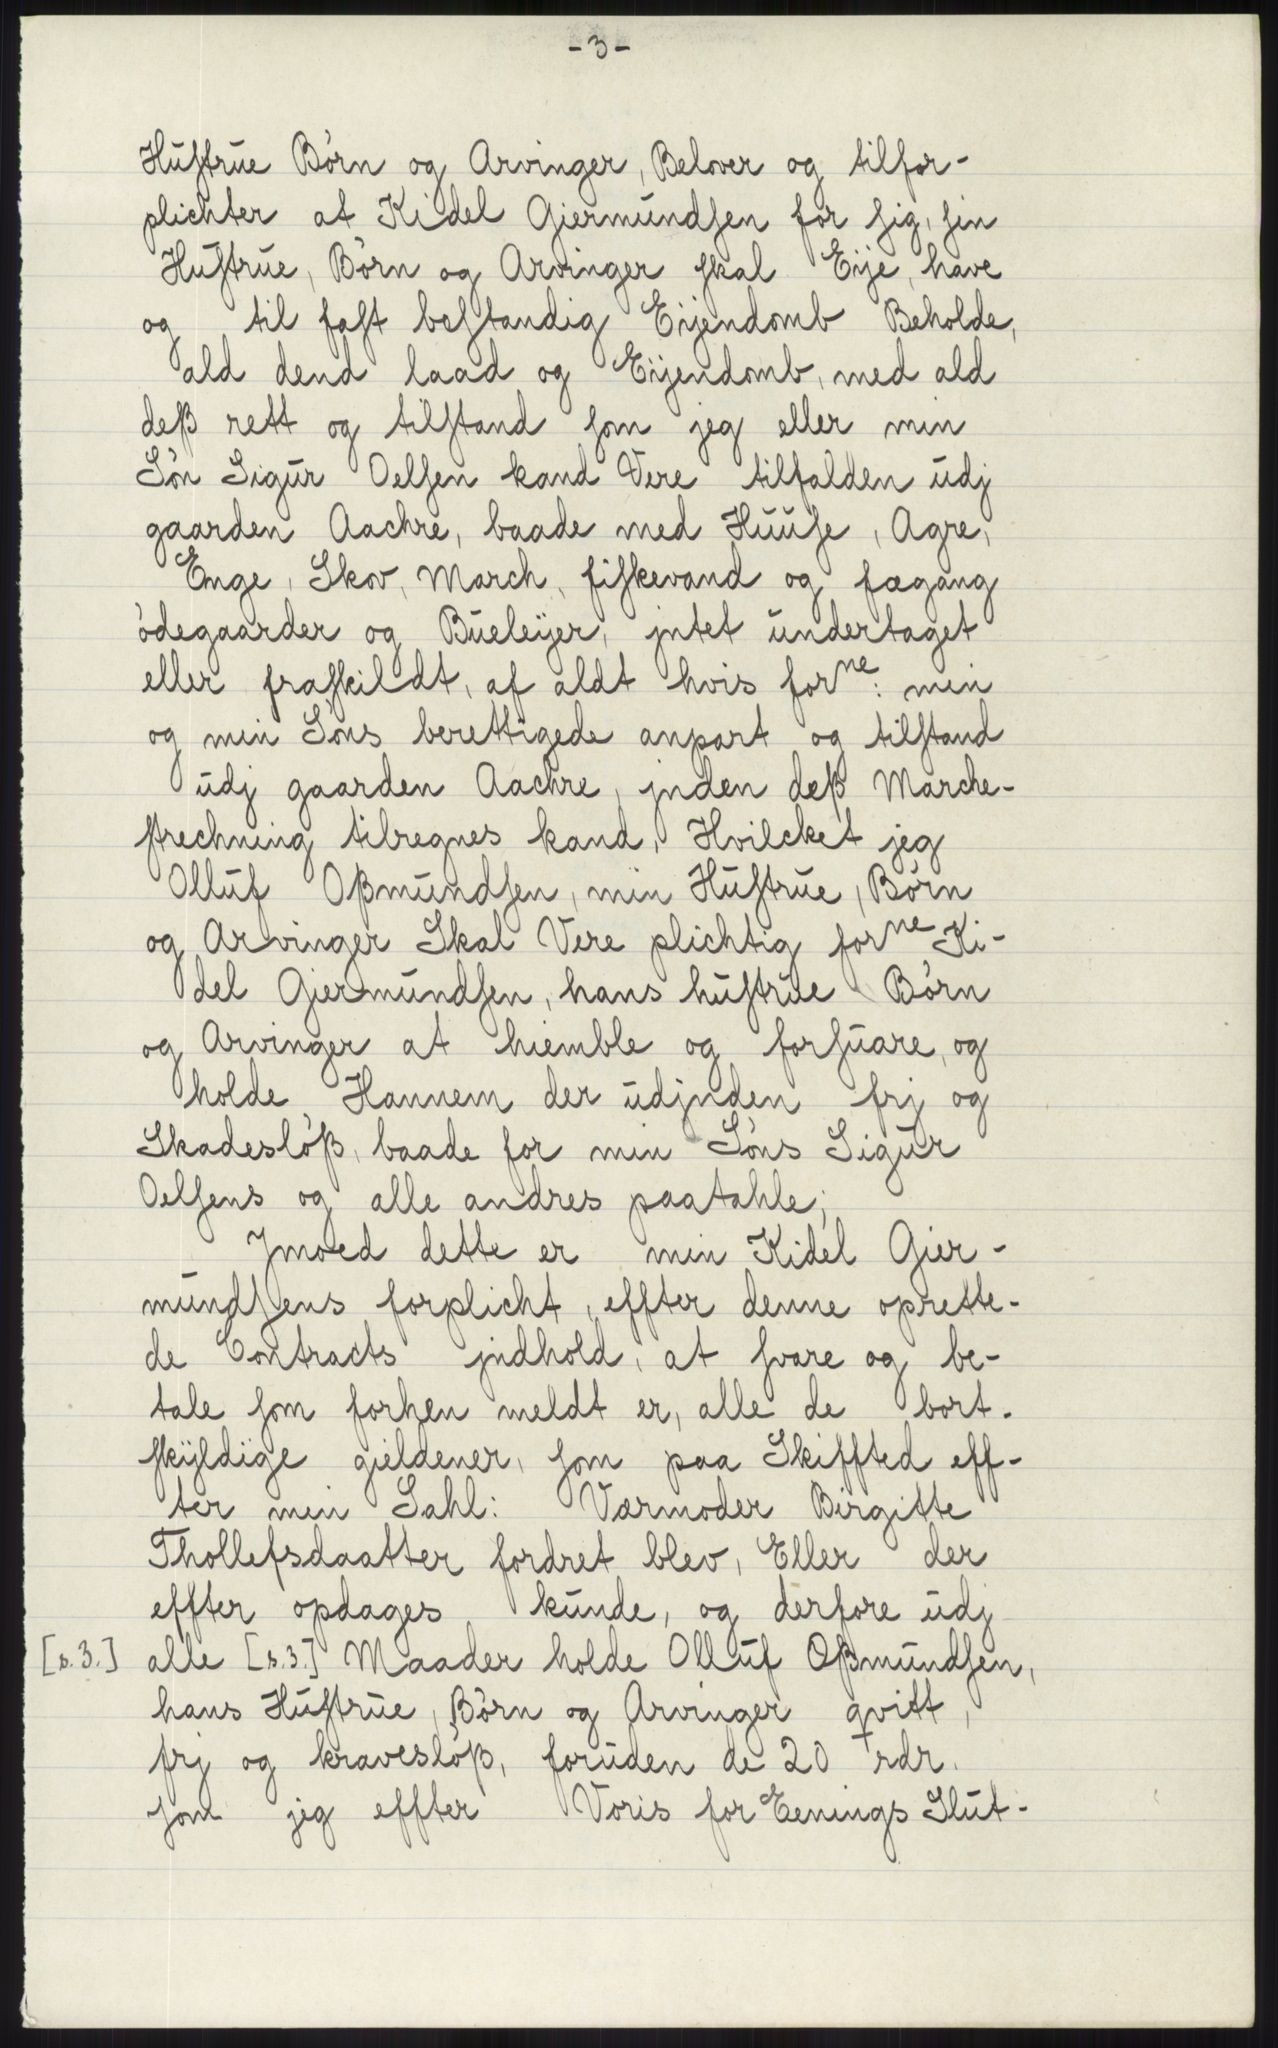 -3-
Hustrue Børn og Arvinger, Belover og tilfor-
plichter at Kidel Giermundsen for sig, sin
Hustrue, Børn og Arvinger skal Eije, have
og til fast bestandig Eijendomb Beholde,
ald dend laad og Eijendomb, med ald
deß rett og tilstand som jeg eller min
Søn Sigur Oelsen kand Vere tilfalden udj
gaarden Aachre, baade med Huuse, Agre,
Enge, Skov, March, fiskevand og fægang
ødegaarder og Bueleijer, jntet undertaget
eller fraskildt, af aldt hvis forne: min
og min Søns berettigede anpart og tilstand
udj gaarden Aachre, jnden deß Marche-
strechning tilregnes kand, Hvilcket jeg
Olluf Oßmundsen, min Hustrue, Børn
og Arvinger Skal Vere plichtig forne Ki-
del Giermundsen, hans hustrue Børn
og Arvinger at hiemble og forsuare, og
holde Hannem der udjnden frj og
Skadesløß, baade for min Søns Sigur
Oelsens og alle andres paatahle;
Jmoed dette er min Kidel Gier-
mundsens forplicht, effter denne oprette-
de Contracts jndhold, at svare og be-
tale som forhen meldt er, alle de bort-
skÿldige gieldener, som paa Skiffted eff-
ter min Sahl: Værmoder Birgitte
Thollefsdaatter fordret blev, Eller der
effter opdages kunde, og derfore udj
[s.3.] alle [s.3.] Maader holde Olluf Oßmundsen,
hans Hustrue, Børn og Arvinger qvitt,
frj og kravesløß, foruden de 20 rdr.
som jeg effter Voris for Eenings Slut-